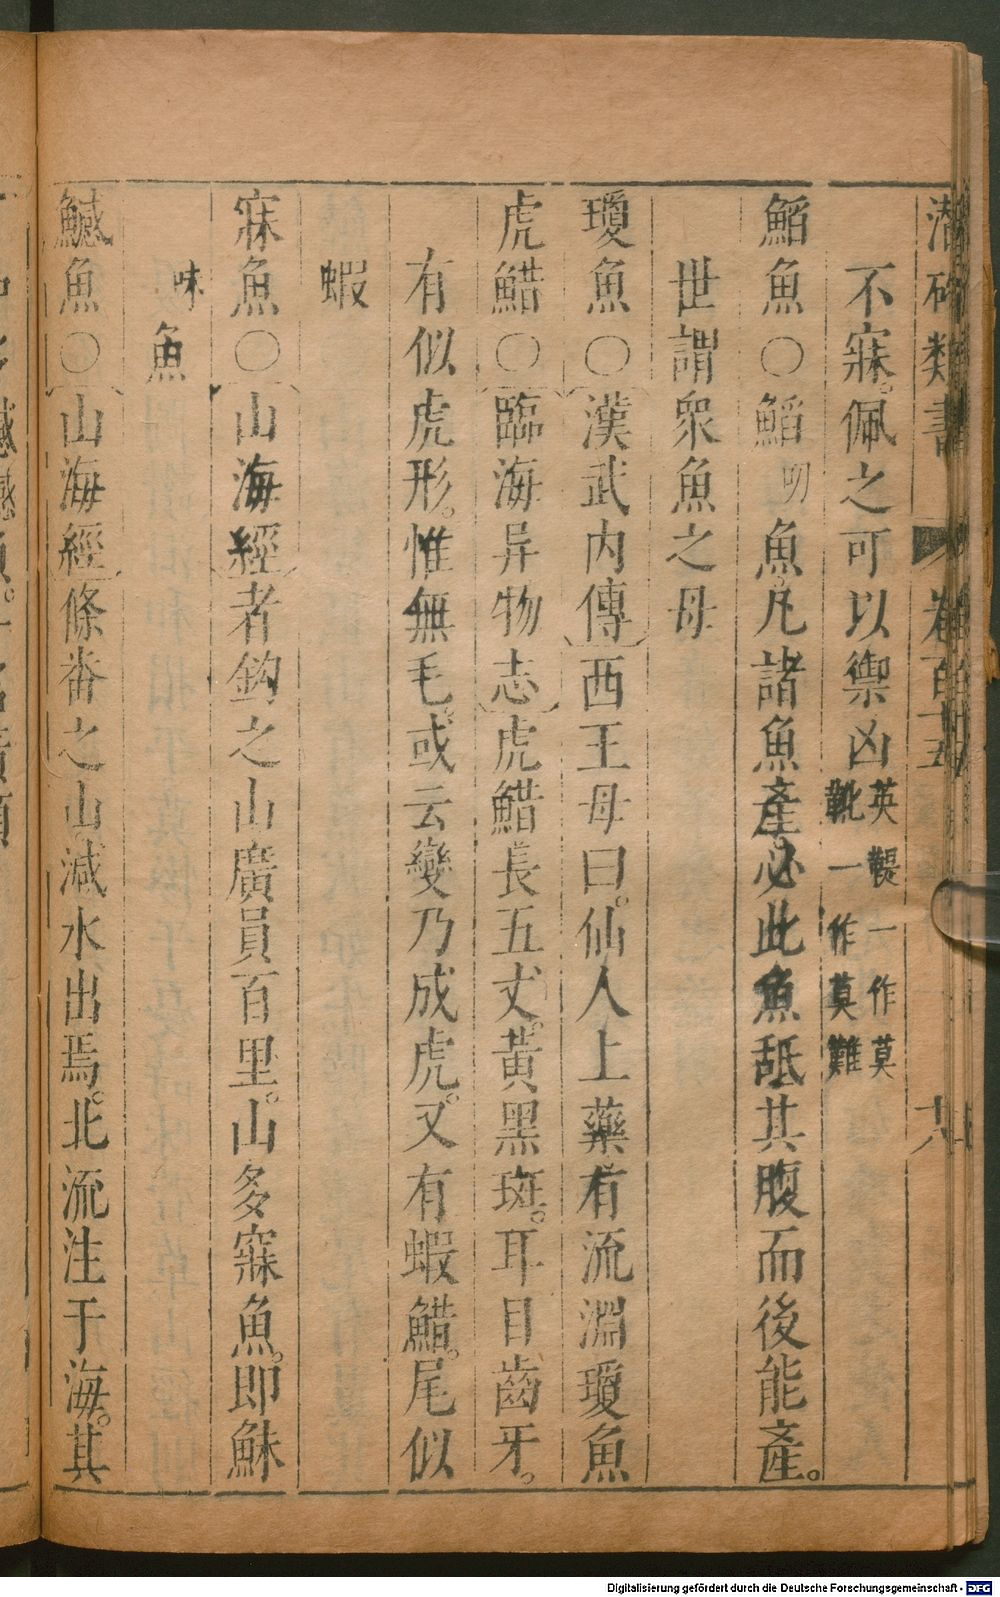 潛確類書 卷百十五 十六
不寐佩之可以禦凶英鞮一作莫靴一作莫難
䱤魚〇䱤明魚凡諸魚產必此魚舐其腹而後能產。
世謂衆魚之母
瓊魚〇漢武內傳西王母曰。仙人上藥有流淵瓊魚
虎䱜〇臨海异物志虎䱜長五丈。黃黑斑。耳目齒牙。
有似虎形。惟無毛。或云變乃成虎。又有蝦䱜。尾似
蝦
寐魚〇山海經者鈎之山廣員百里。山多寐魚。即鮇
味魚
鰔魚〇山海經條番之山。減水出焉。北流注于海。其
Digitalisierung gefördert durch die Deutsche Forschungsgemeinschaft - DFG